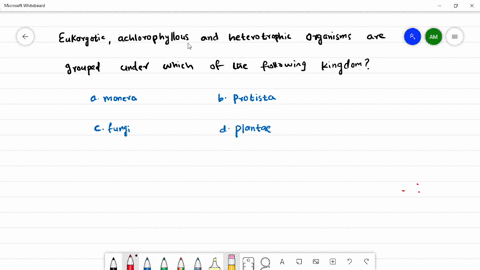 Microsoft Whiteboard
AM
Eukaryotic, achlorophyllous and heterotrophic organisms are
grouped under which of the following kingdom?
a. monera b. Protista
c. fungi d. plantae